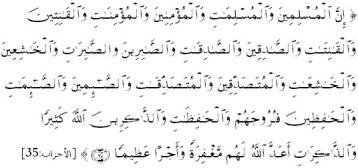 ﴿ إِنَّ الْمُسْلِمِينَ وَالْمُسْلِمَٰتِ وَالْمُؤْمِنِينَ وَالْمُؤْمِنَٰتِ وَالْقَٰنِتِينَ
وَالْقَٰنِتَٰتِ وَالصَّٰدِقِينَ وَالصَّٰدِقَٰتِ وَالصَّٰبِرِينَ وَالصَّٰبِرَٰتِ وَالْخَٰشِعِينَ
وَالْخَٰشِعَٰتِ وَالْمُتَصَدِّقِينَ وَالْمُتَصَدِّقَٰتِ وَالصَّٰٓئِمِينَ وَالصَّٰٓئِمَٰتِ
وَالْحَٰفِظِينَ فُرُوجَهُمْ وَالْحَٰفِظَٰتِ وَالذَّٰكِرِينَ اللَّهَ كَثِيرًا
وَالذَّٰكِرَٰتِ أَعَدَّ اللَّهُ لَهُم مَّغْفِرَةً وَأَجْرًا عَظِيمًا ﴿٣٥﴾ ﴾ [الأحزاب:35]